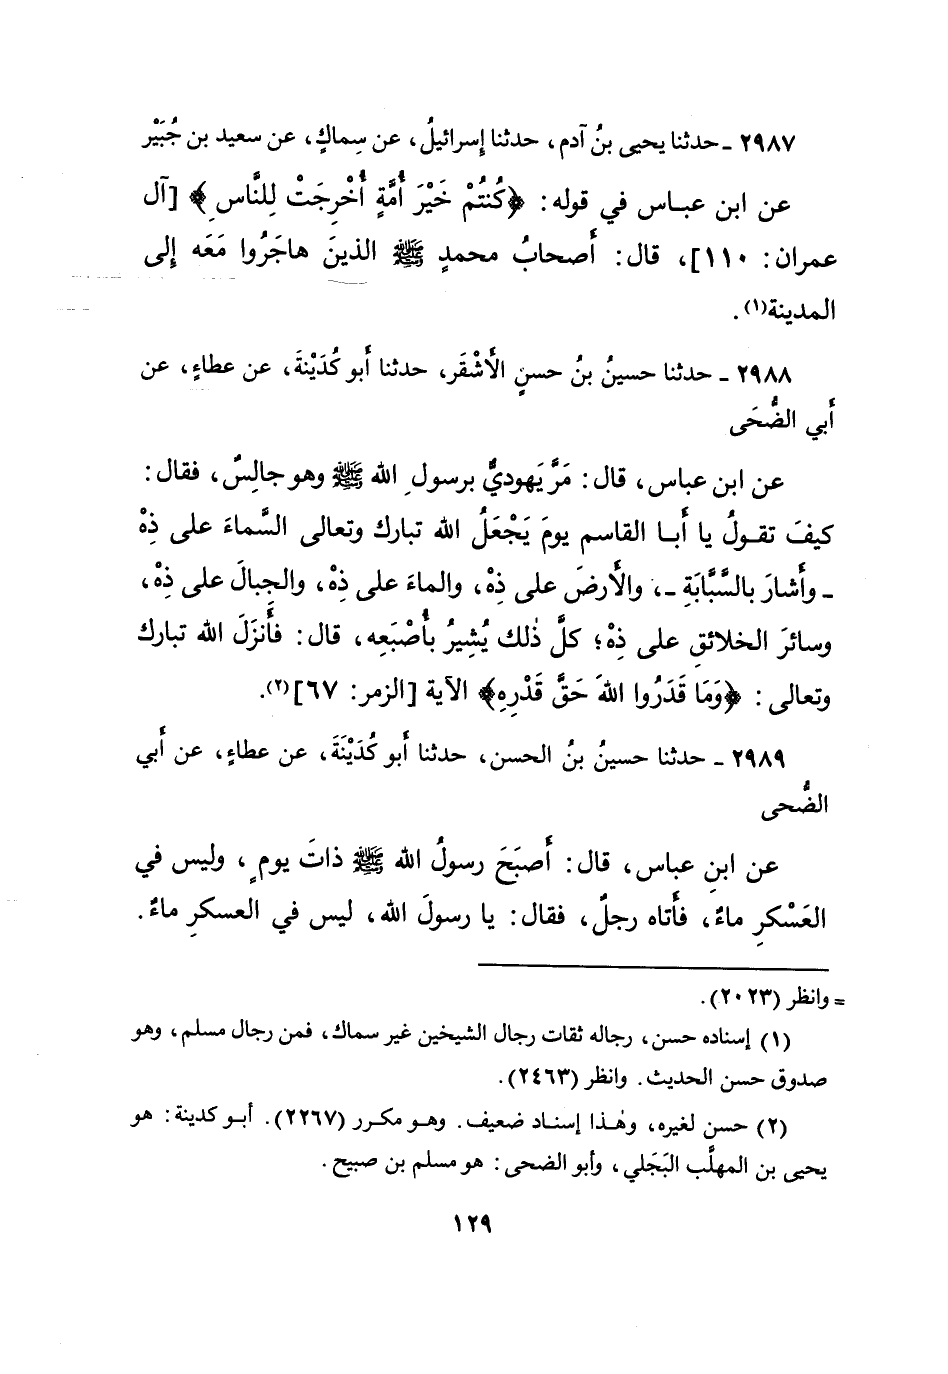 ٢٩٨٧ ـ حدثنا يحيى بنُ آدم، حدثنا إسرائيلُ، عن سِماكٍ، عن سعيد بن جُبَيْر
عن ابن عبـاس في قوله: ﴿كُنتُمْ خَيْرَ أُمَّةٍ أُخْرِجَتْ لِلنَّاسِ﴾ [آل
عمران: ١١٠]، قال: أَصحابُ محمدٍ ﷺ الذينَ هاجَرُوا مَعَه إلى
المدينة(١).
٢٩٨٨ ـ حدثنا حسينُ بنُ حسنٍ الأَشْقَر، حدثنا أَبو كُدَيْنةَ، عن عطاءٍ، عن
أَبي الضُّحَى
عن ابن عباس، قال: مَرَّ يَهوديٌّ برسولِ الله ﷺ وهو جالِسٌ، فقال:
كيفَ تقـولُ يا أَبـا القاسم يومَ يَجْعَلُ الله تبارك وتعالى السَّماءَ على ذِهْ
ـ وأَشارَ بالسَّبَّابَةِ ـ، والأَرضَ على ذِهْ، والماءَ على ذِهْ، والجِبالَ على ذِهْ،
وسائرَ الخلائقِ على ذِهْ؛ كلَّ ذٰلك يُشِيرُ بأُصْبَعِه، قال: فأَنزَلَ الله تبارك
وتعالى: ﴿وَمَا قَدَرُوا اللهَ حَقَّ قَدْرِهِ﴾ الآية [الزمر: ٦٧](٢).
٢٩٨٩ ـ حدثنا حسينُ بنُ الحسن، حدثنا أَبو كُدَيْنَةَ، عن عطاءٍ، عن أَبي
الضُّحى
عن ابنِ عباس، قال: أَصبَحَ رسولُ الله ﷺ ذاتَ يومٍ، وليس في
العَسْكرِ ماءٌ، فأَتاه رجلٌ، فقال: يا رسولَ الله، ليس في العسكرِ ماءٌ.
= وانظر (٢٠٢٣).
(١) إسناده حسن، رجاله ثقات رجال الشيخين غير سماك، فمن رجال مسلم، وهو
صدوق حسن الحديث. وانظر (٢٤٦٣).
(٢) حسن لغيره، وهٰـذا إسنـاد ضعيف. وهـو مكرر (٢٢٦٧). أبـو كدينة: هو
يحيى بن المهلَّب البَجَلي، وأبو الضحى: هو مسلم بن صبيح.
١٢٩